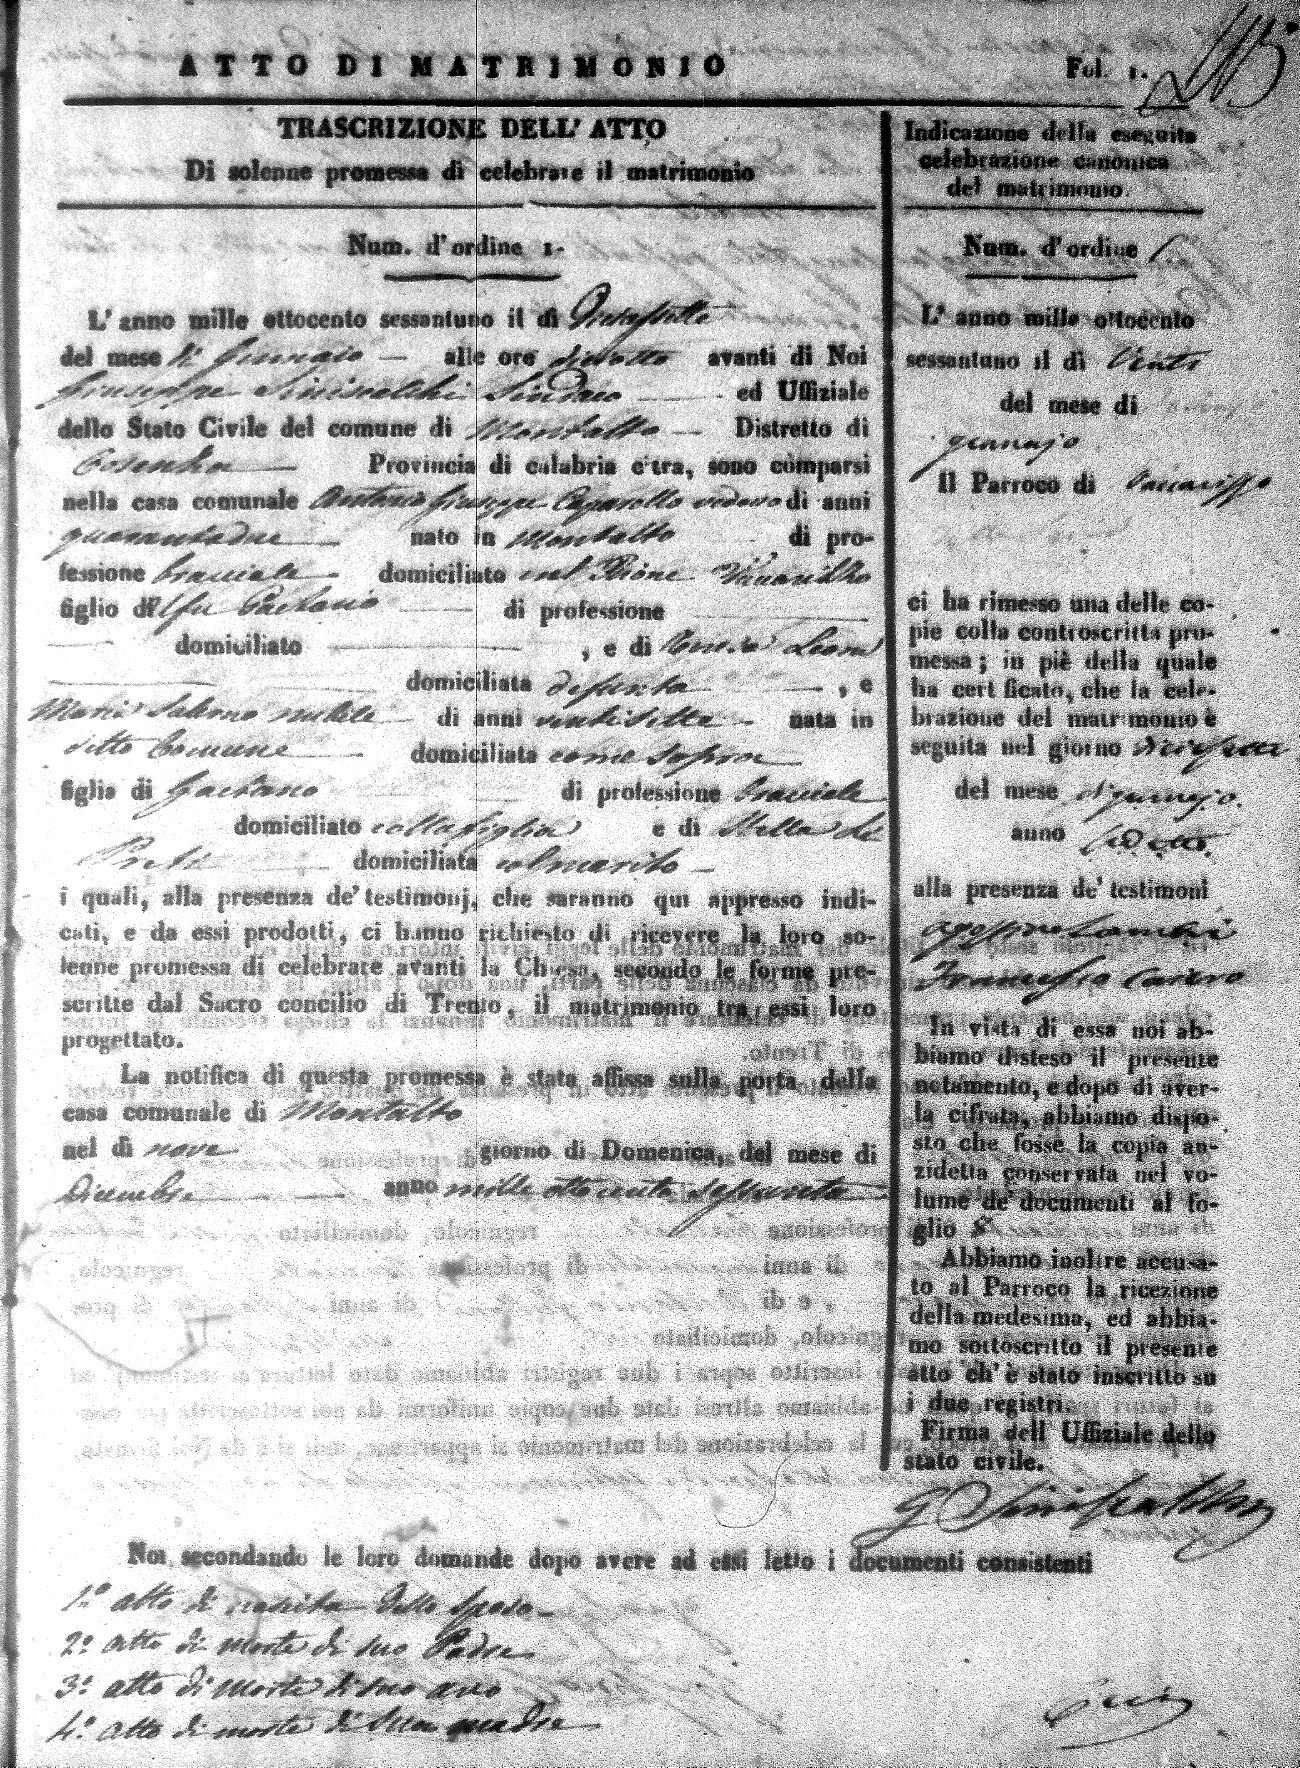 ATTO DI MATRIMONIO
Fol. 1.
TRASCRIZIONE DELL' ATTO
Di solenne promessa di celebrare il matrimonio
Num. d'ordine 1-
L' anno mille ottocento sessantuno il dì
del mese di Gennaio — alle ore diciotto avanti di Noi
Giuseppe Siniscalchi Sindaco — ed Uffiziale
dello Stato Civile del comune di Montalto — Distretto di
Cosenza — Provincia di calabria citra, sono comparsi
nella casa comunale Antonio Giuseppe Caparello vedovo di anni
quarantadue — nato in Montalto di pro-
fessione bracciale domiciliato nel Rione Vaccarizzo
figlio di fu Gaetano — di professione —
— domiciliato — , e di Teresa Leone
— domiciliata defunta — , e
Maria Salerno nubile di anni ventisette — nata in
detto Comune — domiciliata come sopra
figlia di Gaetano di professione bracciale
domiciliato colla figlia e di Stella de
Preti — domiciliata col marito —
i quali, alla presenza de' testimonj, che saranno qui appresso indi-
cati, e da essi prodotti, ci hanno richiesto di ricevere la loro so-
lenne promessa di celebrare avanti la Chiesa, secondo le forme pre-
scritte dal Sacro concilio di Trento, il matrimonio tra essi loro
progettato.
La notifica di questa promessa è stata affissa sulla porta della
casa comunale di Montalto
nel dì nove giorno di Domenica, del mese di
Dicembre — anno mille ottocento sessanta
Indicazione della eseguita
celebrazione canonica
del matrimonio.
Num. d'ordine 1.
L' anno mille ottocento
sessantuno il dì Venti
del mese di
gennajo
Il Parroco di Vaccarizzo
ci ha rimesso una delle co-
pie colla controscritta pro-
messa; in piè della quale
ha certificato, che la cele-
brazione del matrimonio è
seguita nel giorno
del mese di gennajo.
anno suddetto.
alla presenza de' testimoni
Francesco
In vista di essa noi ab-
biamo disteso il presente
notamento, e dopo di aver-
la cifrata, abbiamo dispo-
sto che fosse la copia an-
zidetta conservata nel vo-
lume de' documenti al fo-
glio 8
Abbiamo inoltre accusa-
to al Parroco la ricezione
della medesima, ed abbia-
mo sottoscritto il presente
atto ch' è stato inscritto su
i due registri.
Firma dell' Uffiziale dello
stato civile.
G Siniscalchi
Noi, secondando le loro domande dopo avere ad essi letto i documenti consistenti
1.º atto di nascita dello sposo —
2.º atto di morte di suo Padre
3.º atto di morte di suo avo
4.º atto di morte di sua madre —